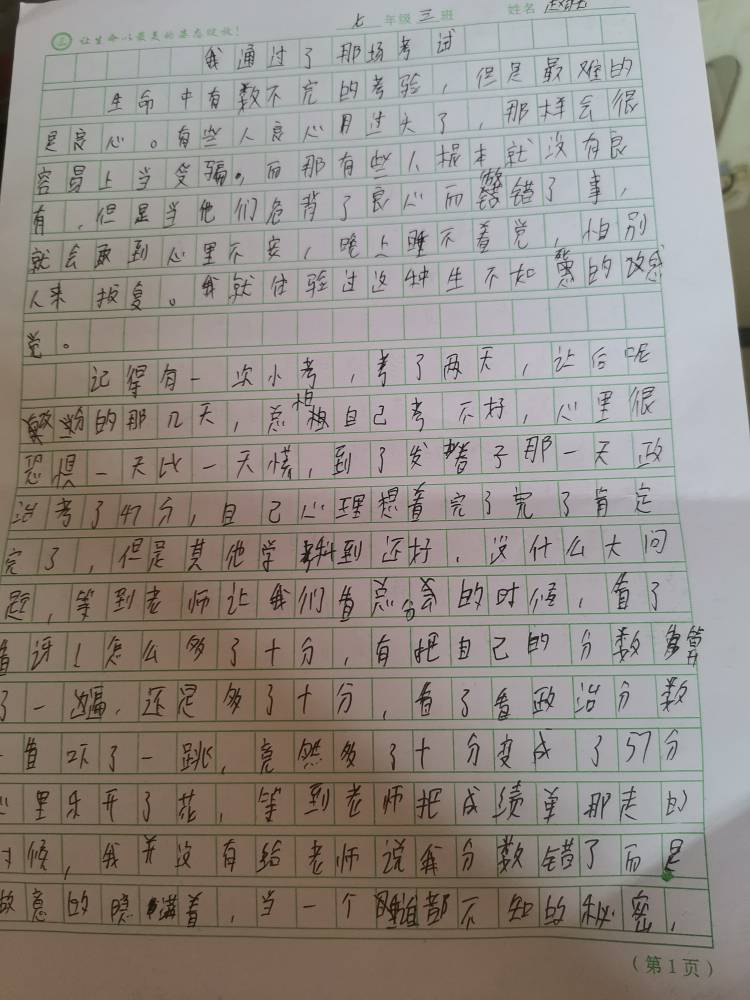 让生命以最美的姿态绽放！ 七 年级 三 班 姓名
我通过了那场考试
生命中有数不完的考验，但是最难的
是良心。有些人良心用过头了，那样会很
容易上当受骗。而那有些人根本就没有良
有，但是当他们危背了良心而做错了事，
就会取到心里不安，晚上睡不着觉，怕别
人来报复。我就体验过这种生不如的感
觉。
记得有一次小考，考了两天，让后呢
的那几天，总想自己考不好，心里很
恐惧一天比一天慌，到了发卷子那一天政
治考了47分，自己心理想着完了完了肯定
完了，但是其他学科到还好，没什么大问
题，等到老师让我们查总分的时候，查了
查讶！怎么多了十分，有把自己的分数算
了一遍，还是多了十分，看了看政治分数
一查吓了一跳，竟然多了十分变成了57分
心里乐开了花，等到老师把成绩单那走的
时候，我并没有给老师说我分数错了而是
故意的隐瞒着，当一个谁都不知的秘密，
（第1页）